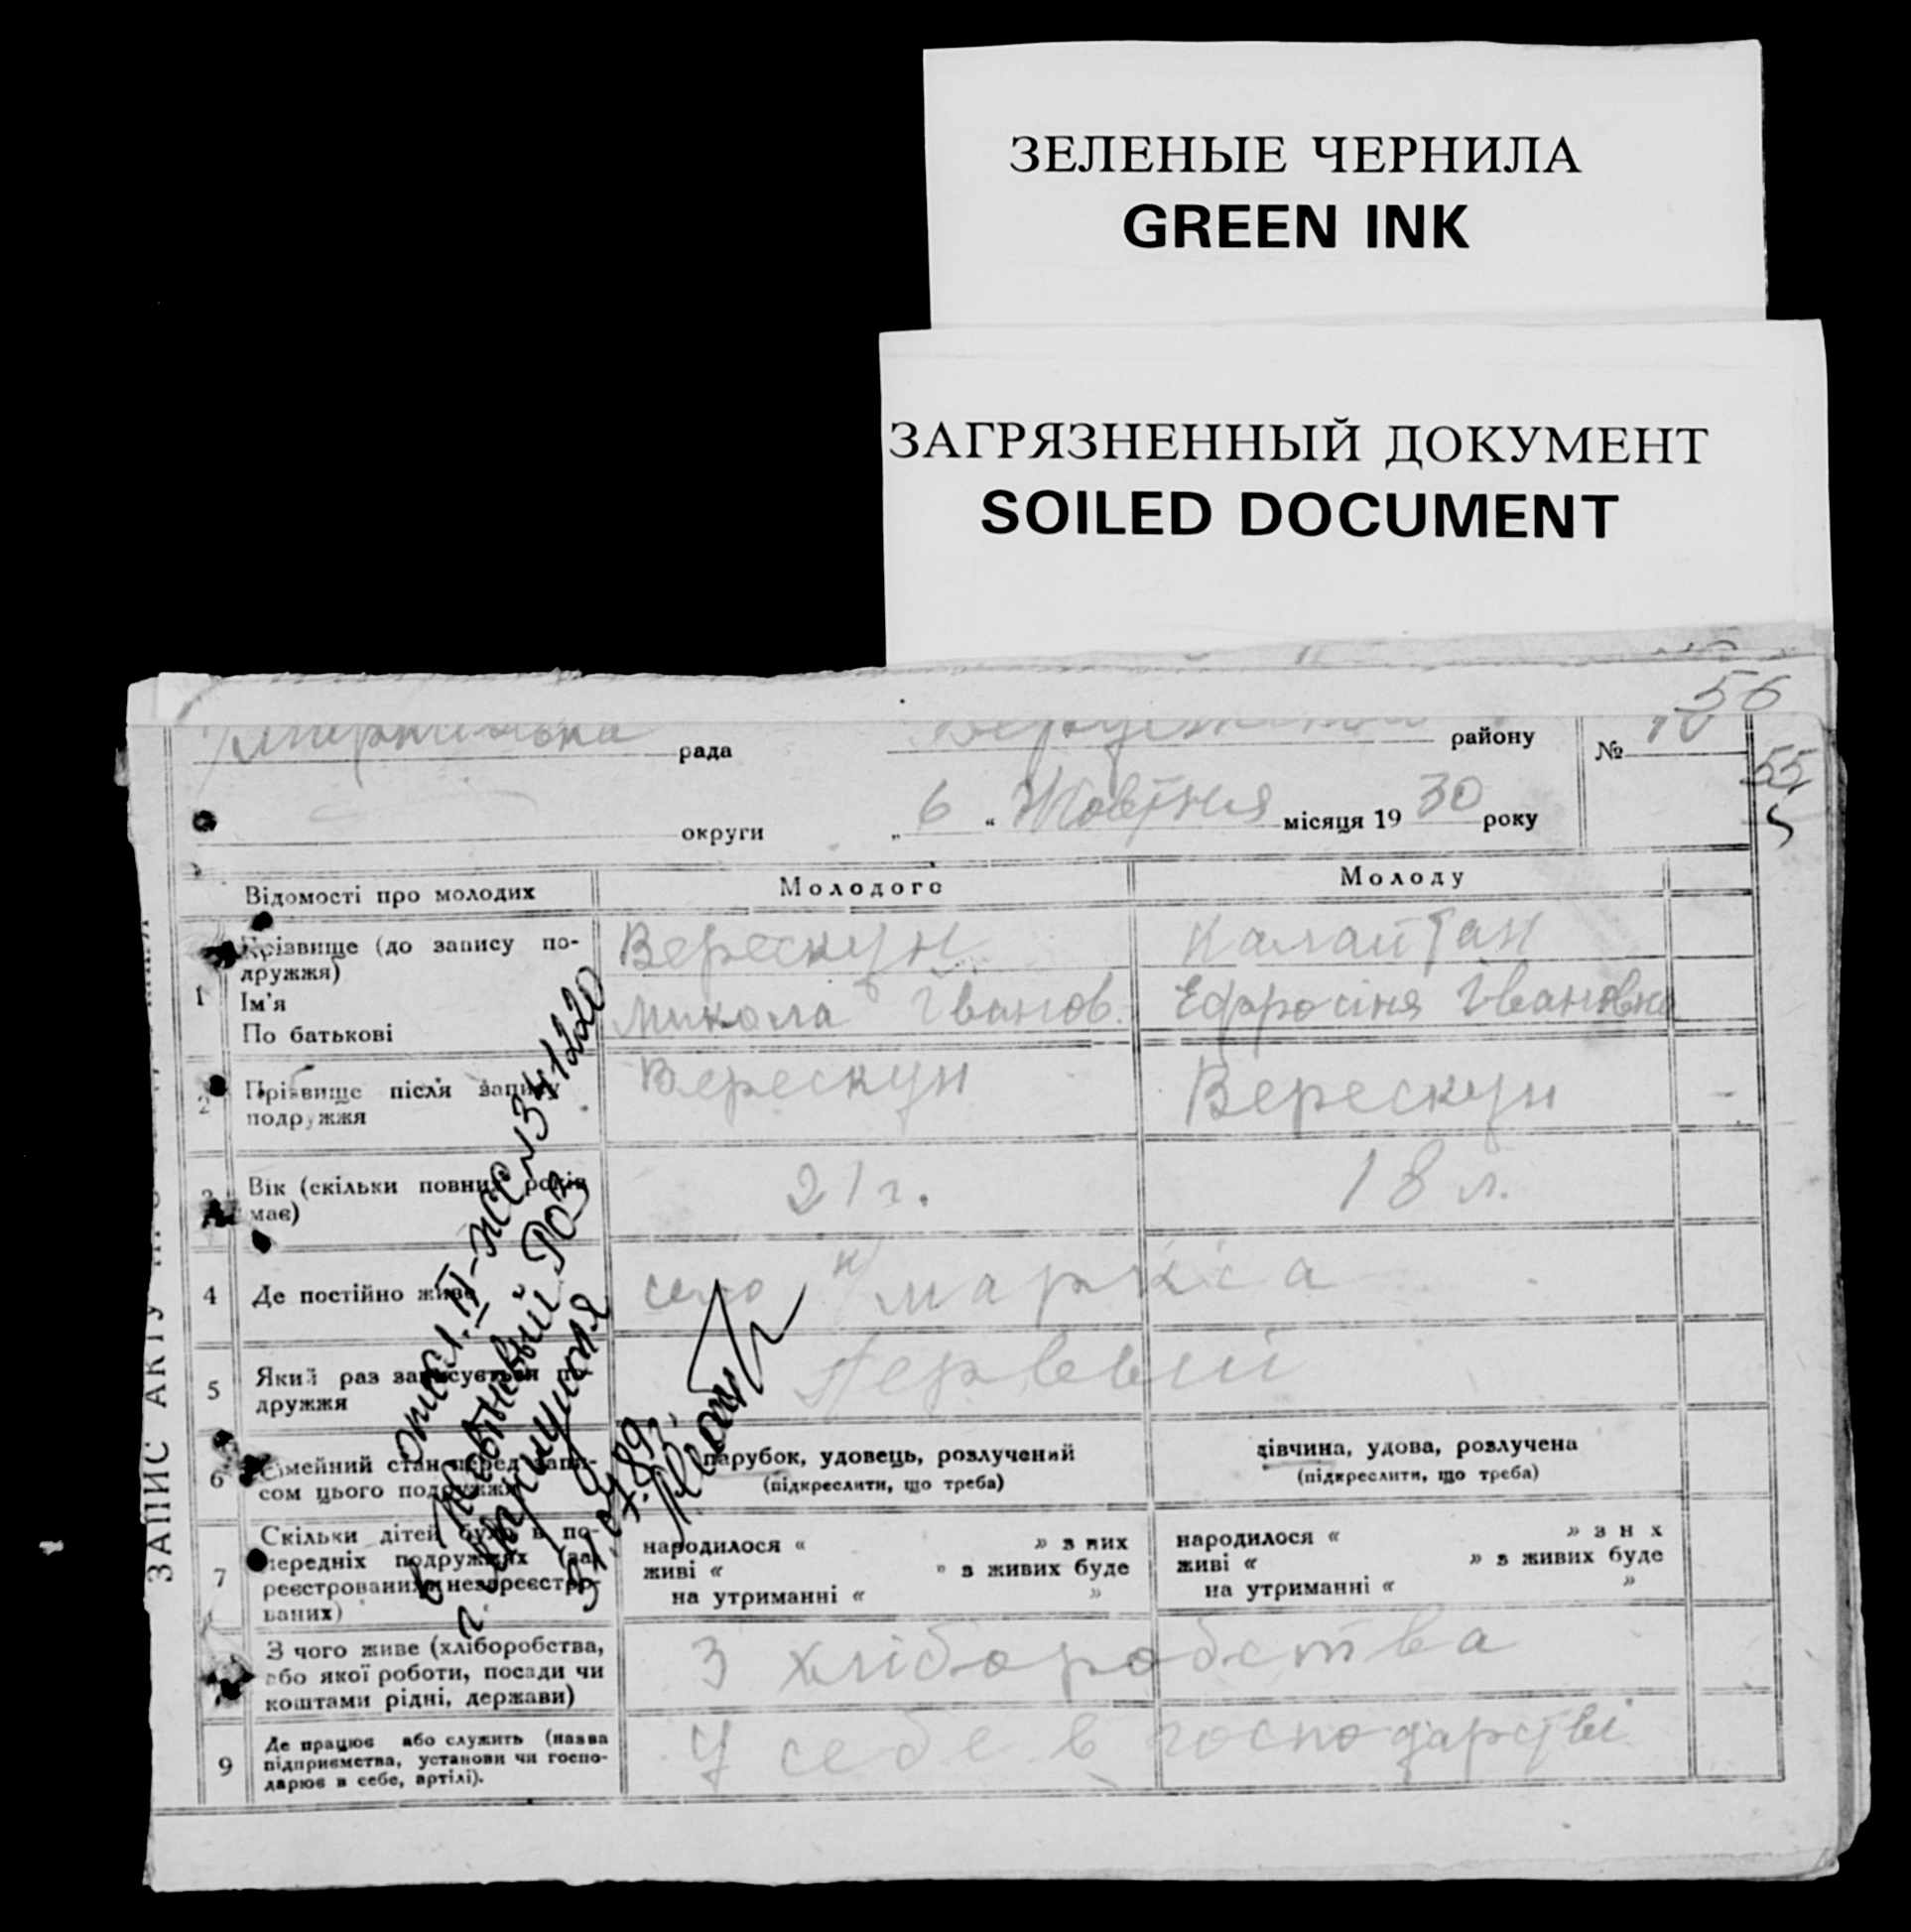 ЗЕЛЕНЫЕ ЧЕРНИЛА
GREEN INK
ЗАГРЯЗНЕННЫЙ ДОКУМЕНТ
SOILED DOCUMENT
56
рада району № 10
55
округи „ 6 “ Жовтня місяця 19 30 року
ЗАПИС АКТУ
Відомості про молодих Молодого Молоду
1 Прізвище (до запису по-
дружжя) Верескун Калайтан
Ім'я
По батькові Микола Іванов. Ефросіня Івановна
2 Прізвище після запису
подружжя Верескун Верескун
3 Вік (скільки повних років
має) 21 г. 18 л.
4 Де постійно живе село
5 Який раз записується по-
дружжя Первый
6 Сімейний стан перед запи-
сом цього подружжя
парубок, удовець, розлучений
(підкреслити, що треба)
дівчина, удова, розлучена
(підкреслити, що треба)
7 Скільки дітей було в по-
передніх подружжях (за-
реєстрованих і незареєстро-
ваних)
народилося « » з них
живі « » з живих буде
на утриманні « »
народилося « » з н х
живі « » з живих буде
на утриманні « »
З чого живе (хліборобства,
або якої роботи, посади чи
коштами рідні, держави) З хліборобства
9 Де працює або служить (назва
підприємства, установи чи госпо-
дарює в себе, артілі). У себе в господарстві
II-ЖС № 341220